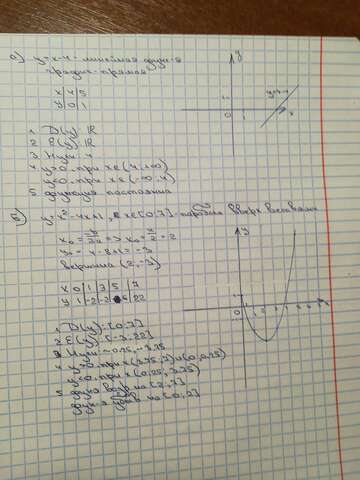 а) y=x-4 - линейная функ-я
график-прямая
x | 4 | 5
y | 0 | 1
1. D(y): R
2. E(y): R
3. Нули: 4
4. y>0, при x∈(4,+∞)
y<0, при x∈(-∞,4)
5. функция
y
y=x-4
0 1 x
б) y=x²-4x+1, x∈[0,7] - парабола вверх ветвями
x₀=-b/2a => x₀=4/2=2
y₀=4-8+1=-3
вершина (2,-3)
x | 0 | 1 | 3 | 5 | 7
y | 1 | -2 | -2 | 6 | 22
1. D(y): [0,7]
2. E(y): [-3,22]
3. Нули: ~0,25, ~3,75
4. y>0, при x(3,75,7)∪(0,0,25)
y<0, при x(0,25,3,75)
5. функ возр на [2,7]
функ-я убыв на [0,2]
y
0 1